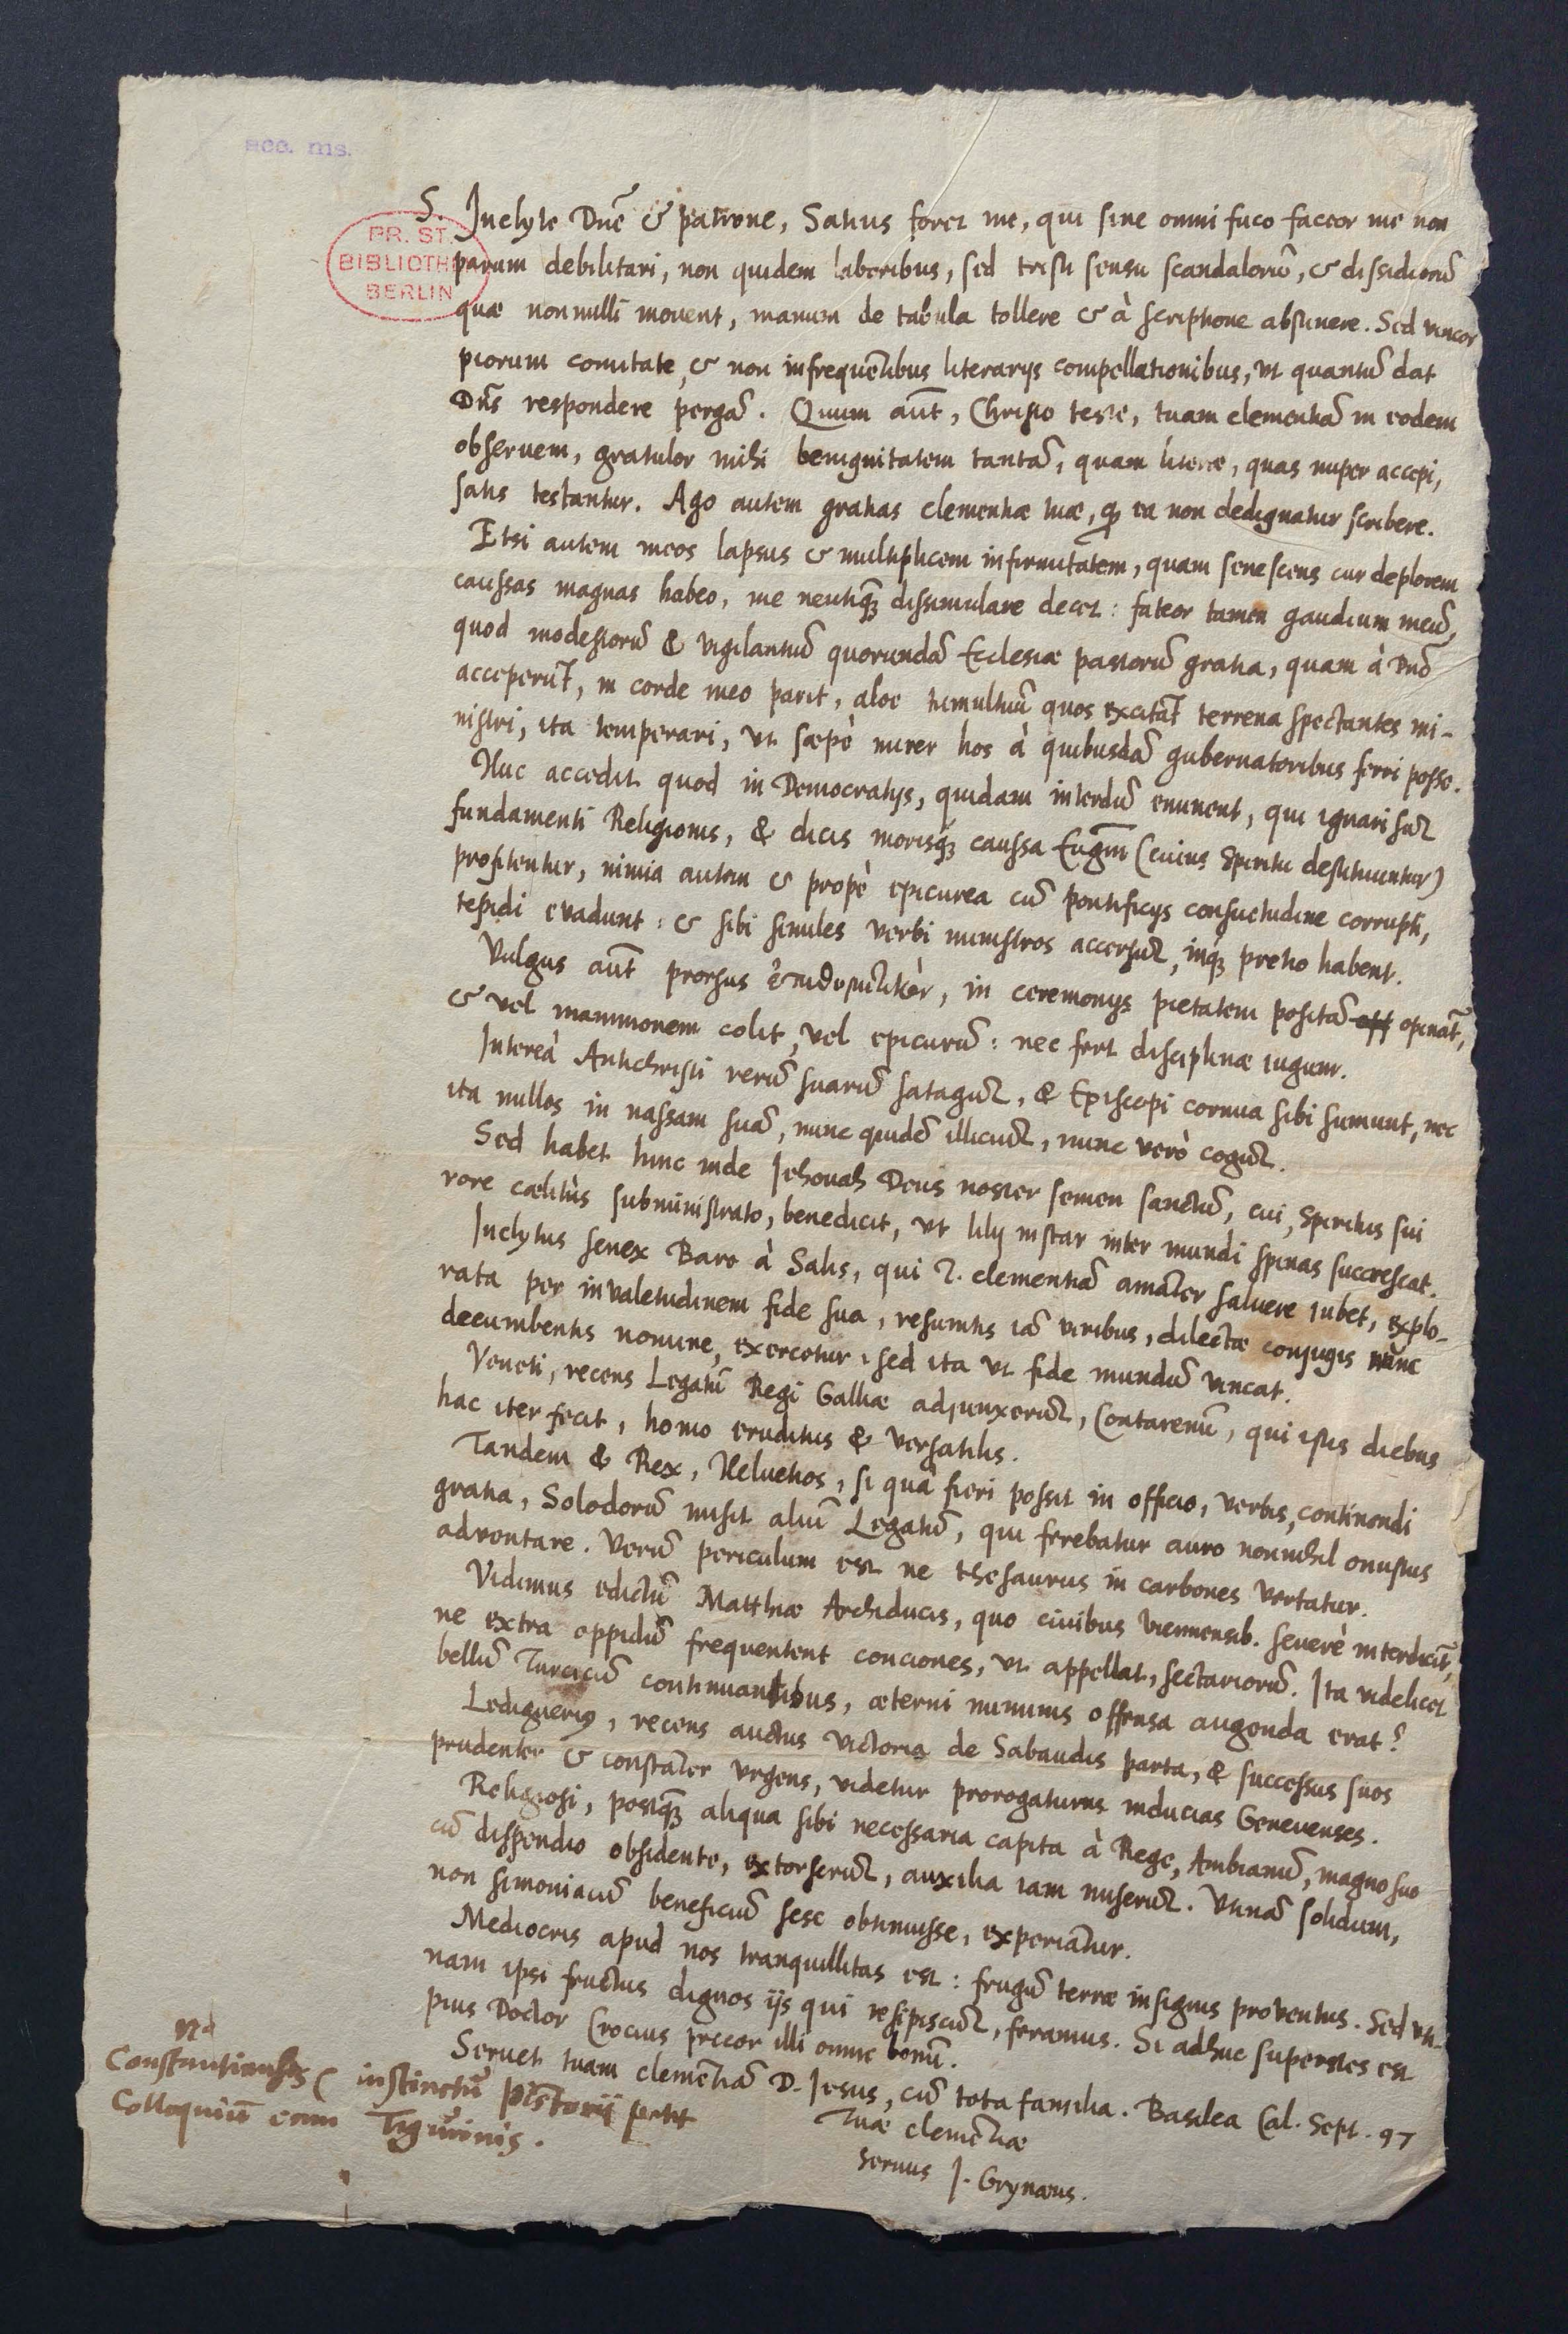 acc. ms.
PR. ST.
BIBLIOTHE
BERLIN
S. Inclyte Dn̄e & patrone, Satius foret me, qui sine omni fuco fateor me non
parum debilitari, non quidem laboribus, sed tristi sensu scandalorū, & dissidiorū
quæ nonnulli mouent, manum de tabula tollere & à scriptione abstinere. Sed vincor
piorum comitate, & non infrequētibus literarijs compellationibus, vt quantū dat
Dn̄s respondere pergā. Quum aūt, Christo teste, tuam clementiā in eodem
obseruem, gratulor mihi benignitatem tantā, quam literæ, quas nuper accepi,
satis testantur. Ago autem gratias clementiæ tuæ, qđ ea non dedignatur scribere.
Etsi autem meos lapsus & multiplicem infirmitatem, quam senescens cur deplorem
caussas magnas habeo, me neutiqꝫ dissimulare decet: fateor tamen gaudium meū,
quod modestiorū & vigilantiū quorundā Ecclesiæ pastorū gratia, quam à Dn̄o
acceperūt, in corde meo parit, aloe tumultuū quos excitāt terrena spectantes mi-
nistri, ita temperari, vt sæpè mirer hos à quibusdā gubernatoribus ferri posse.
Huc accedit quod in Democratijs, quidam interdū eminent, qui ignari sūt
fundamenti Religionis, & dicis morisqꝫ caussa Eugm̄ (cuius Spiritu destituuntur)
profitentur, nimia autem & propè epicurea cū pontificijs consuetudine corrupti,
tepidi evadunt: & sibi similes verbi ministros accersūt, inqꝫ pretio habent.
Vulgus aūt prorsus, in ceremonijs pietatem positā opināt̄,
& vel mammonem colit, vel epicurū: nec fert disciplinæ iugum.
Intereà Antichristi rerū suarū satagūt, & Episcopi cornua sibi sumunt, nec
ita nullos in nassam suā, nunc quidē illiciūt, nunc verò cogūt.
Sed habet hinc inde Jehouah Deus noster semen sanctū, cui, Spiritus sui
rore cælitùs subministrato, benedicit, vt lilij instar inter mundi spinas succrescat.
Inclytus senex Baro à Salis, qui T. clementiā amāter saluere iubet, explo-
rata per invaletudinem fide sua, resumtis iā viribus, dilectæ conjugis nunc
decumbentis nomine, exercetur, sed ita vt fide mundū vincat.
Veneti, recens Legatū Regi Galliæ adjunxerūt, Contarenū, qui istis diebus
hac iter fecit, homo eruditus & versatilis.
Tandem & Rex, Heluetios, si quà fieri possit in officio, verbis, continendi
gratia, Solodorū misit aliū Legatū, qui ferebatur auro nonnihil onustus
adventare. Verū periculum est ne thesaurus in carbones vertatur.
Vidimus edictū Matthiæ Archiducis, quo ciuibus Viennensib. seuerè interdicit̄,
ne extra oppidū frequentent conciones, vt appellat, sectariorū. Ita videlicet
bellū Turcicū continuantibus, æterni numinis offensa augenda erat?
Lediguerius, recens auctus victoria de Sabaudis parta, & successus suos
prudenter & constāter vrgens, videtur prorogaturus inducias Geneuenses.
Religiosi, postqꝫ aliqua sibi necessaria capita à Rege, Ambianū, magno suo
cū dispendio obsidente, extorserūt, auxilia iam miserūt. Vtinā solidum,
non simoniacū beneficiū sese obtinuisse, experiātur.
Mediocris apud nos tranquillitas est: frugū terræ insignis proventus. Sed vti-
nam ipsi fructus dignos ijs qui resipiscūt, feramus. Si adhuc superstes est
pius Doctor Crocius precor illi omne bonū.
Seruet tuam clemētiā D. Jesus, cū tota familia. Basilea Cal. Sept. 97
Tuæ clemētiæ
seruus J. Grynæus.
Constantiensis instinctū Pistorij petit
Colloquiū cum Tigurinis.